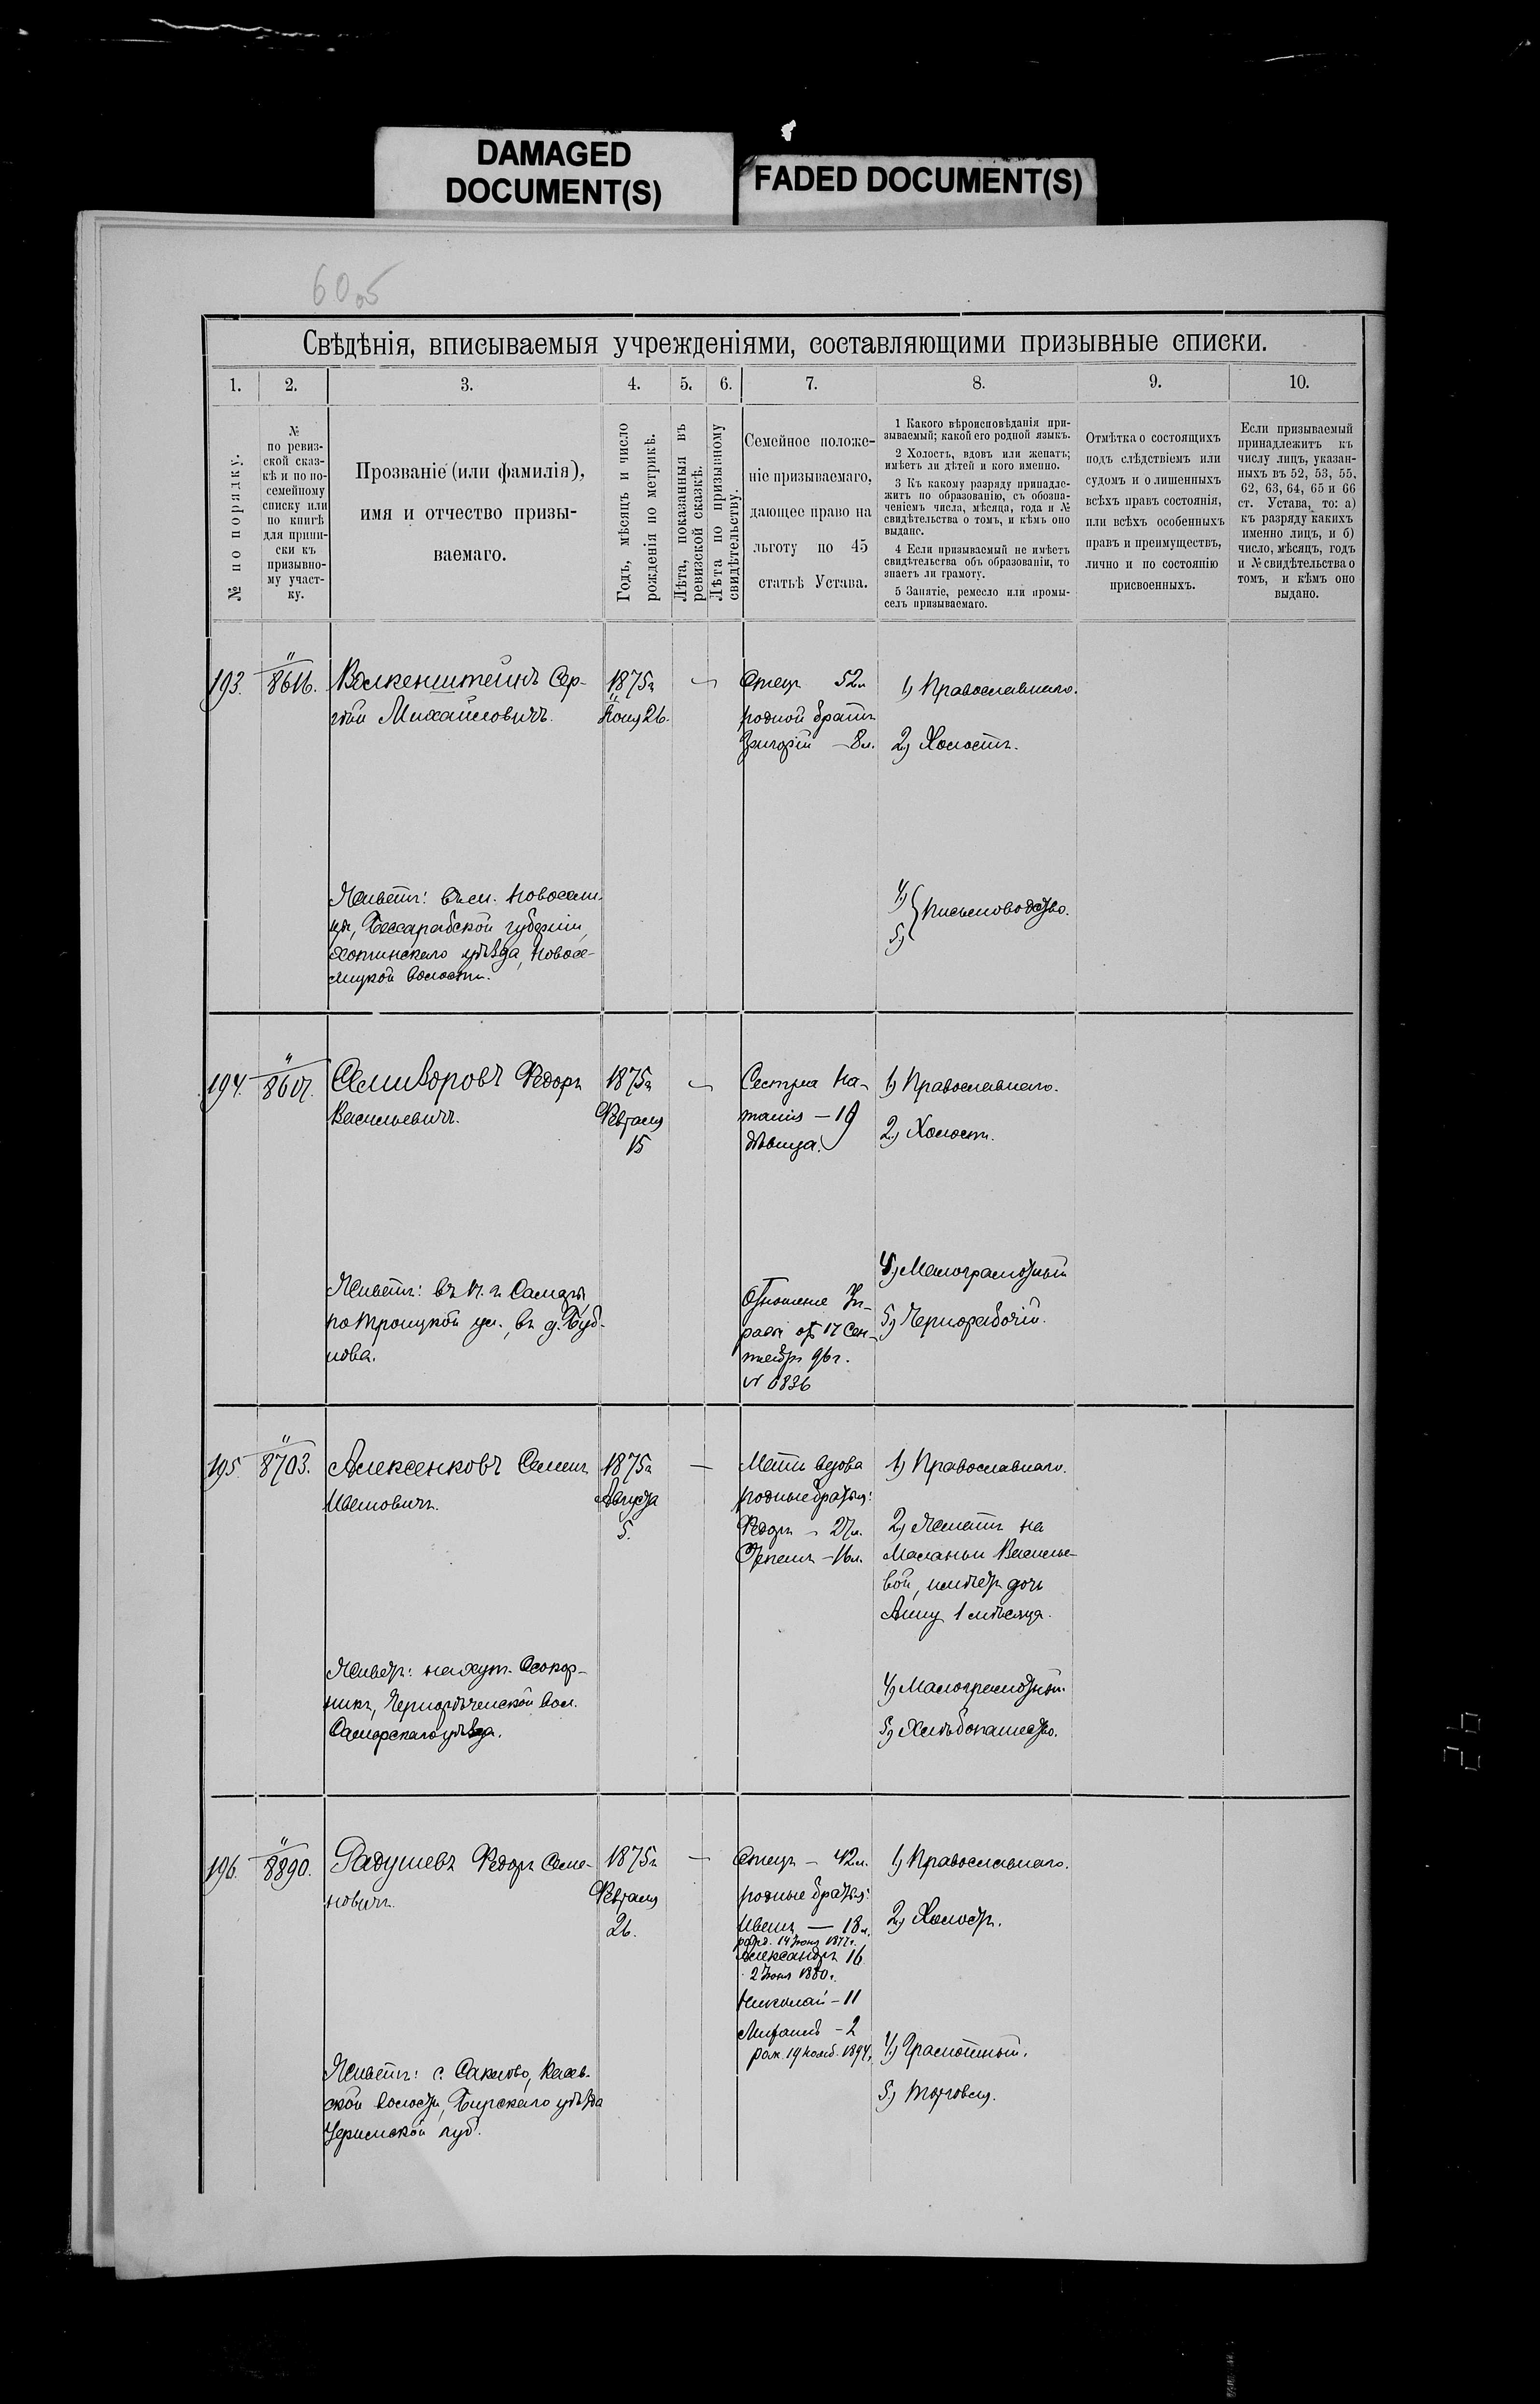 DAMAGED
DOCUMENT(S)
FADED DOCUMENT(S)
60 об
Свѣдѣнія, вписываемыя учрежденіями, составляющими призывные списки.
1. 2. 3. 4. 5. 6. 7. 8. 9. 10.
№ по порядку.
№
по ревиз-
ской сказ-
кѣ и по по-
семейному
списку или
по книгѣ
для припи-
ски къ
призывно-
му участ-
ку.
Прозваніе (или фамилія),
имя и отчество призы-
ваемаго.
Годъ, мѣсяцъ и число
рожденія по метрикѣ.
Лѣта, показанныя въ
ревизской сказкѣ.
Лѣта по призывному
свидѣтельству.
Семейное положе-
ніе призываемаго,
дающее право на
льготу по 45
статьѣ Устава.
1 Какого вѣроисповѣданія при-
зываемый; какой его родной языкъ.
2 Холостъ, вдовъ или женатъ;
имѣетъ ли дѣтей и кого именно.
3 Къ какому разряду принадле-
житъ по образованію, съ обозна-
ченіемъ числа, мѣсяца, года и №
свидѣтельства о томъ, и кѣмъ оно
выдано.
4 Если призываемый не имѣетъ
свидѣтельства объ образованіи, то
знаетъ ли грамоту.
5 Занятіе, ремесло или промы-
селъ призываемаго.
Отмѣтка о состоящихъ
подъ слѣдствіемъ или
судомъ и о лишенныхъ
всѣхъ правъ состоянія,
или всѣхъ особенныхъ
правъ и преимуществъ,
лично и по состоянію
присвоенныхъ.
Если призываемый
принадлежитъ къ
числу лицъ, указан-
ныхъ въ 52, 53, 55,
62, 63, 64, 65 и 66
ст. Устава, то: а)
къ разряду какихъ
именно лицъ, и б)
число, мѣсяцъ, годъ
и № свидѣтельства о
томъ, и кѣмъ оно
выдано.
193.
"
8616.
Волкенштейнъ Сер-
гѣй Михайловичъ.
1875г
26.
Отецъ 52л
родной братъ
Григорій - 8л.
1) Православнаго.
2) Холостъ.
Живетъ: въ м. Новосели-
цы, Бессарабской губерніи,
Хотинскаго уѣзда, Новосе-
лицкой волости.
4)
5)
Письмоводство.
194.
"
8607.
Семиворовъ Федоръ
Васильевичъ.
1875г
Февраля
15
Сестра На-
талія - 19
дѣвица.
1) Православнаго.
2) Холостъ.
Живетъ: въ г. Самарѣ
по Троицкой ул., въ д. Буб-
нова.
Отношеніе Уп-
равы отъ 17 Сен-
тября 96г.
№ 6836
4) Малограмотный
5) Чернорабочій.
195.
"
8703.
Алексенковъ Семенъ
Ивановичъ.
1875г
Августа
5.
Мать вдова
родные братья:
Федоръ - 27л.
16л.
1) Православнаго.
2) Женатъ на
Маланьи Василье-
вой, имѣетъ дочь
Анну 1 мѣсяца.
Живетъ: на хут. Осокор-
никъ, Чернорѣченской вол.
Самарскаго уѣзда.
4) Малограмотный.
5) Хлѣбопашество.
196.
"
8890.
Радушевъ Федоръ Семе-
новичъ.
1875г
Февраля
26.
Отецъ - 42л.
родные братья:
Иванъ - 18л.
род. 14 Іюня 1877г.
Александръ 16
2 Іюня 1880г.
Николай - 11
2
рож. 19 нояб. 1894г.
1) Православнаго.
2) Холостъ.
Живетъ: с.
волости, Бирскаго уѣзда
Уфимской губ.
4) Грамотный.
5) Торговля.